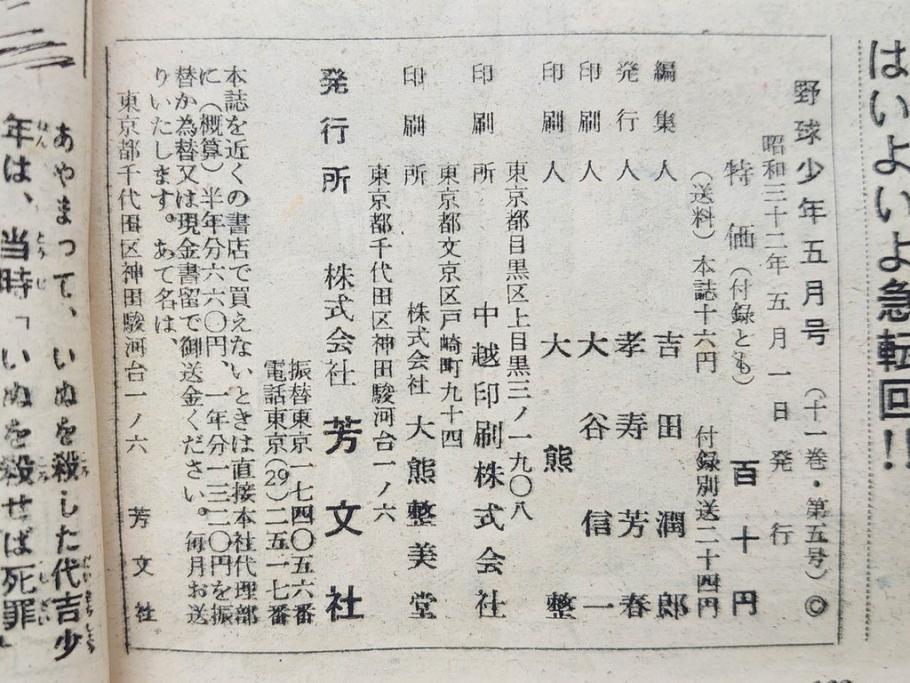 はいよいよ急転回!!
野球少年五月号 (十一巻・第五号) ◎
昭和三十二年五月一日発行
特価 (付録とも) 百十円
(送料) 本誌十六円 付録別送二十四円
編集人 吉田潤郎
発行人 孝寿芳春
印刷人 大谷信一
印刷人 大熊整
東京都目黒区上目黒三ノ一九〇八
印刷所 中越印刷株式会社
東京都文京区戸崎町九十四
印刷所 株式会社 大熊整美堂
東京都千代田区神田駿河台一ノ六
発行所 株式会社 芳文社
振替東京一七四〇五六番
電話東京(29)二五一七番
本誌を近くの書店で買えないときは直接本社代理部
に(概算)半年分六六〇円、一年分一三二〇円を振
替か為替又は現金書留で御送金ください。毎月お送
りいたします。あて名は、
東京都千代田区神田駿河台一ノ六 芳文社
あやまって、いぬを殺した代吉少
年は、当時「いぬを殺せば死罪」